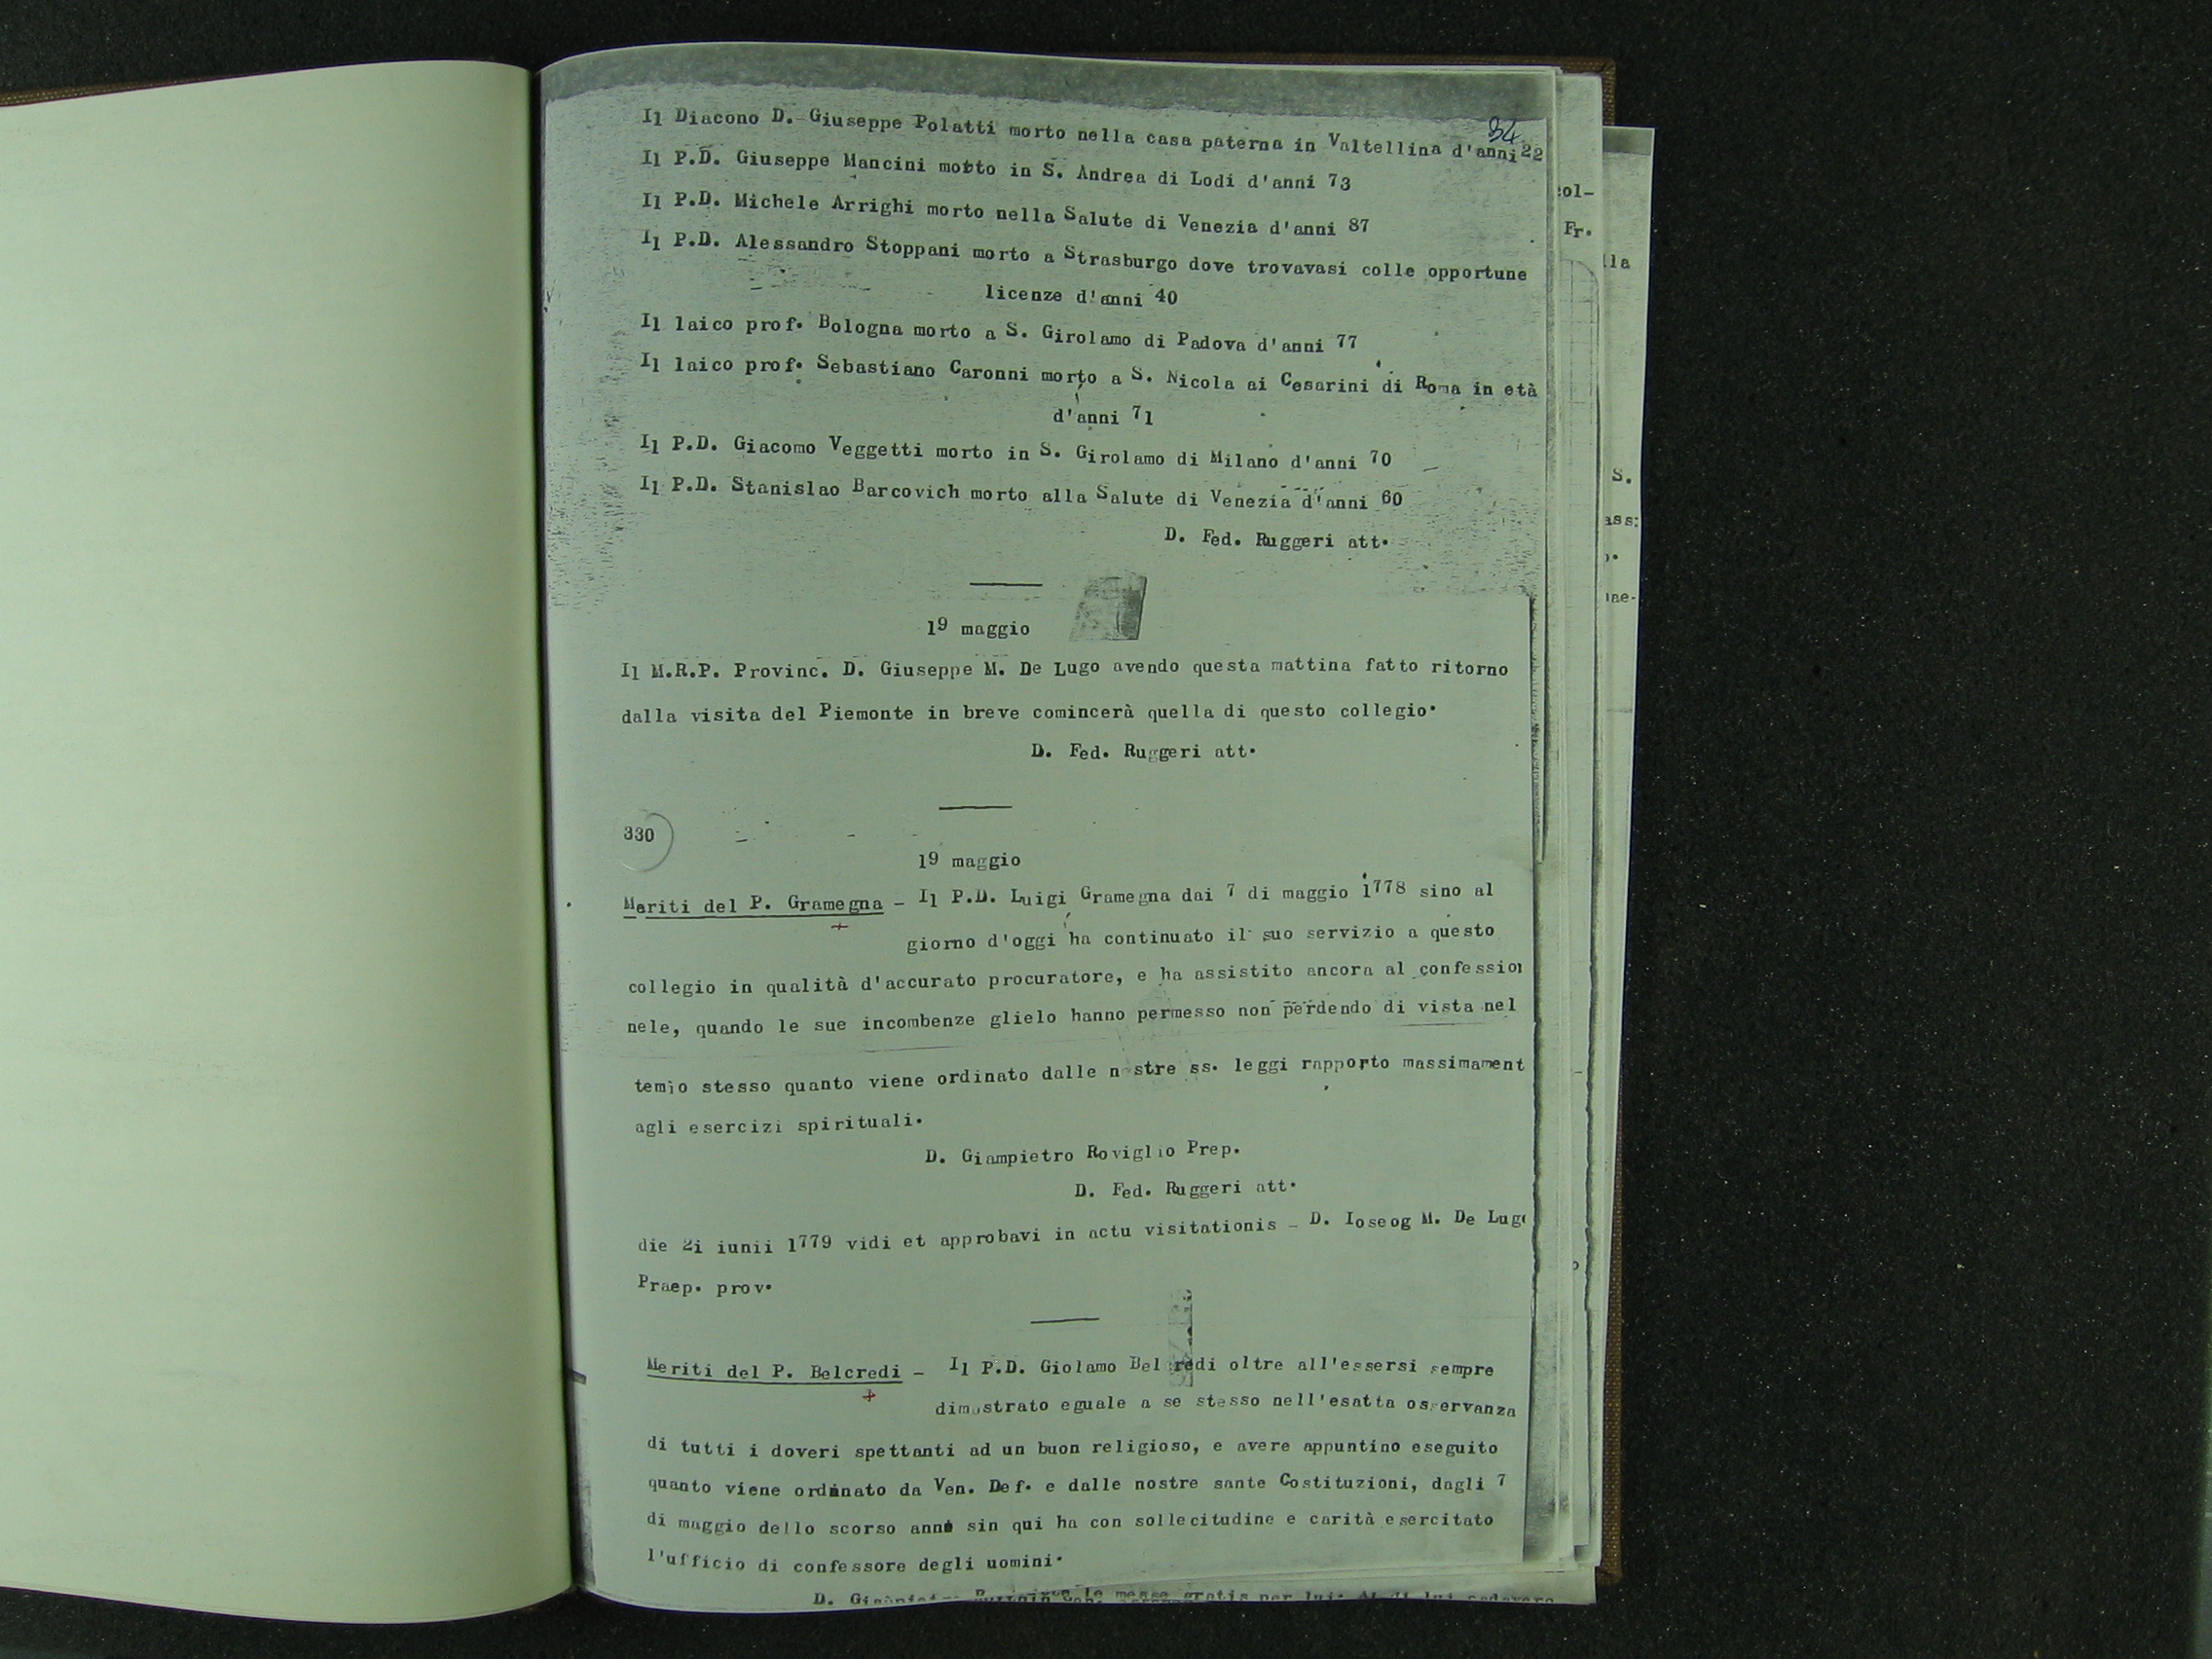 34
Il Diacono D. Giuseppe Polatti morto nella casa paterna in Valtellina d'anni 22
Il P.D. Giuseppe Mancini motto in S. Andrea di Lodi d'anni 73
Il P.D. Michele Arrighi morto nella Salute di Venezia d'anni 87
Il P.D. Alessandro Stoppani morto a Strasburgo dove trovavasi colle opportune
licenze d'anni 40
Il laico prof. Bologna morto a S. Girolamo di Padova d'anni 77
Il laico prof. Sebastiano Caronni morto a S. Nicola ai Cesarini di Roma in età
d'anni 71
Il P.D. Giacomo Veggetti morto in S. Girolamo di Milano d'anni 70
Il P.D. Stanislao Barcovich morto alla Salute di Venezia d'anni 60
D. Fed. Ruggeri att.
19 maggio
Il M.R.P. Provinc. D. Giuseppe M. De Lugo avendo questa mattina fatto ritorno
dalla visita del Piemonte in breve comincerà quella di questo collegio.
D. Fed. Ruggeri att.
330
19 maggio
Meriti del P. Gramegna - Il P.D. Luigi Gramegna dai 7 di maggio 1778 sino al
giorno d'oggi ha continuato il suo servizio a questo
collegio in qualità d'accurato procuratore, e ha assistito ancora al confession
nele, quando le sue incombenze glielo hanno permesso non perdendo di vista nel
temio stesso quanto viene ordinato dalle nostre ss. leggi rapporto massimament
agli esercizi spirituali.
D. Giampietro Roviglio Prep.
D. Fed. Ruggeri att.
die 2i iunii 1779 vidi et approbavi in actu visitationis - D. Ioseog M. De Lugo
Praep. prov.
Meriti del P. Belcredi - Il P.D. Giolamo Belcredi oltre all'essersi sempre
dimostrato eguale a se stesso nell'esatta osservanza
di tutti i doveri spettanti ad un buon religioso, e avere appuntino eseguito
quanto viene ordinato da Ven. Def. e dalle nostre sante Costituzioni, dagli 7
di maggio dello scorso anno sin qui ha con sollecitudine e carità esercitato
l'ufficio di confessore degli uomini.
col-
Fr.
lla
S.
ass: